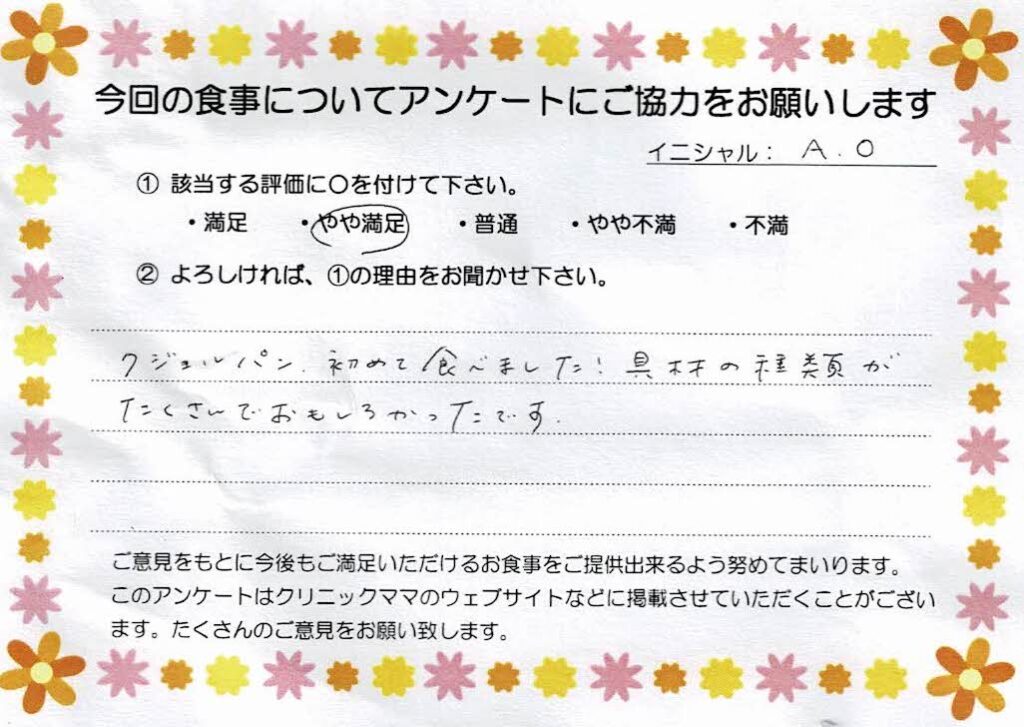 今回の食事についてアンケートにご協力をお願いします
イニシャル： A.O
① 該当する評価に〇を付けて下さい。
・満足 ・やや満足 ・普通 ・やや不満 ・不満
② よろしければ、①の理由をお聞かせ下さい。
クジェルパン、初めて食べました！具材の種類が
たくさんでおもしろかったです.
ご意見をもとに今後もご満足いただけるお食事をご提供出来るよう努めてまいります。
このアンケートはクリニックママのウェブサイトなどに掲載させていただくことがござい
ます。たくさんのご意見をお願い致します。